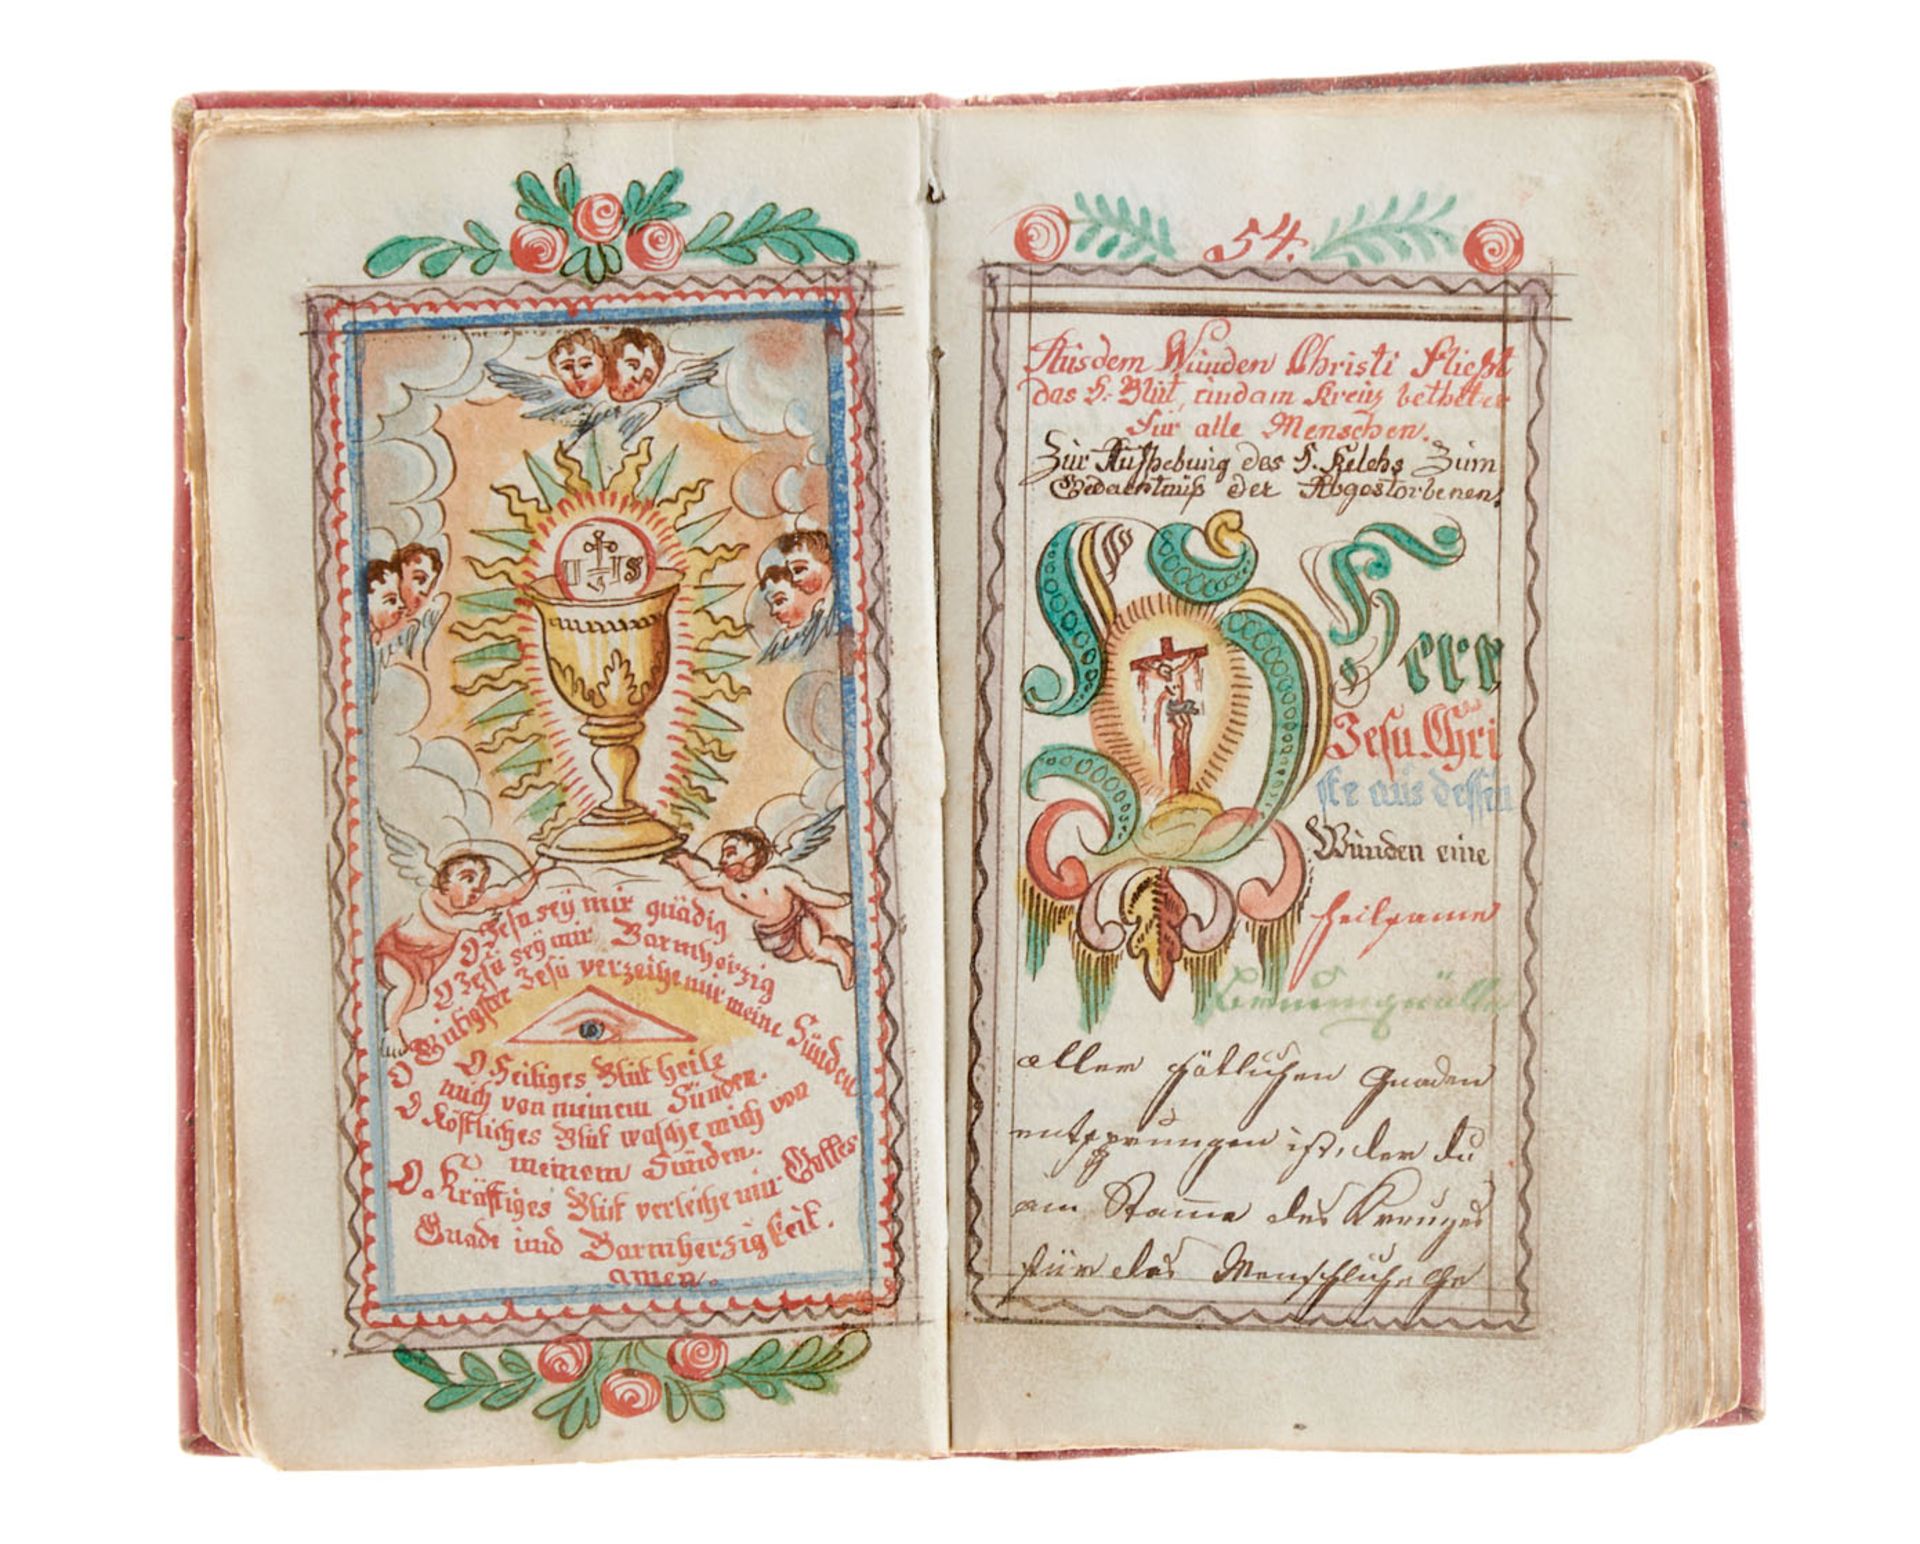 IHS
O Jesu seÿ mir gnädig
O Jesu seÿ mir Barmherzig
O Gütigster Jesu verzeihe mir meine Sünden
O Heiliges Blut heile
mich von meinem Sünden.
O Köstliches Blut wasche mich von
meinem Sünden.
O Kräftiges Blut verleihe mir Gottes
Gnade und Barmherzigkeit.
amen.
54.
Aus dem Wunden Christi Fließt
das H. Blut, und am Kreuz bethet er
für alle Menschen.
Zur Aufhebung des H. Kelchs Zum
Gedächtnuß der Abgestorbenen.
Herr
Jesu Chri
ste aus dessen
Wunden eine
heilsame
Brunnquälle
aller götlichen Gnaden
entsprungen ist, der du
am Stamme des Kreuzes
für das Menschliche Ge